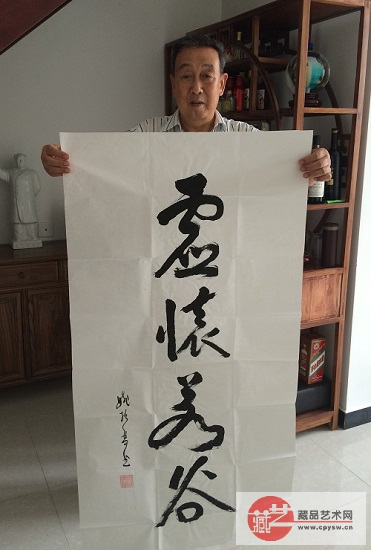 虚懷若谷
藏艺
藏品艺术网
www.cpysw.cn